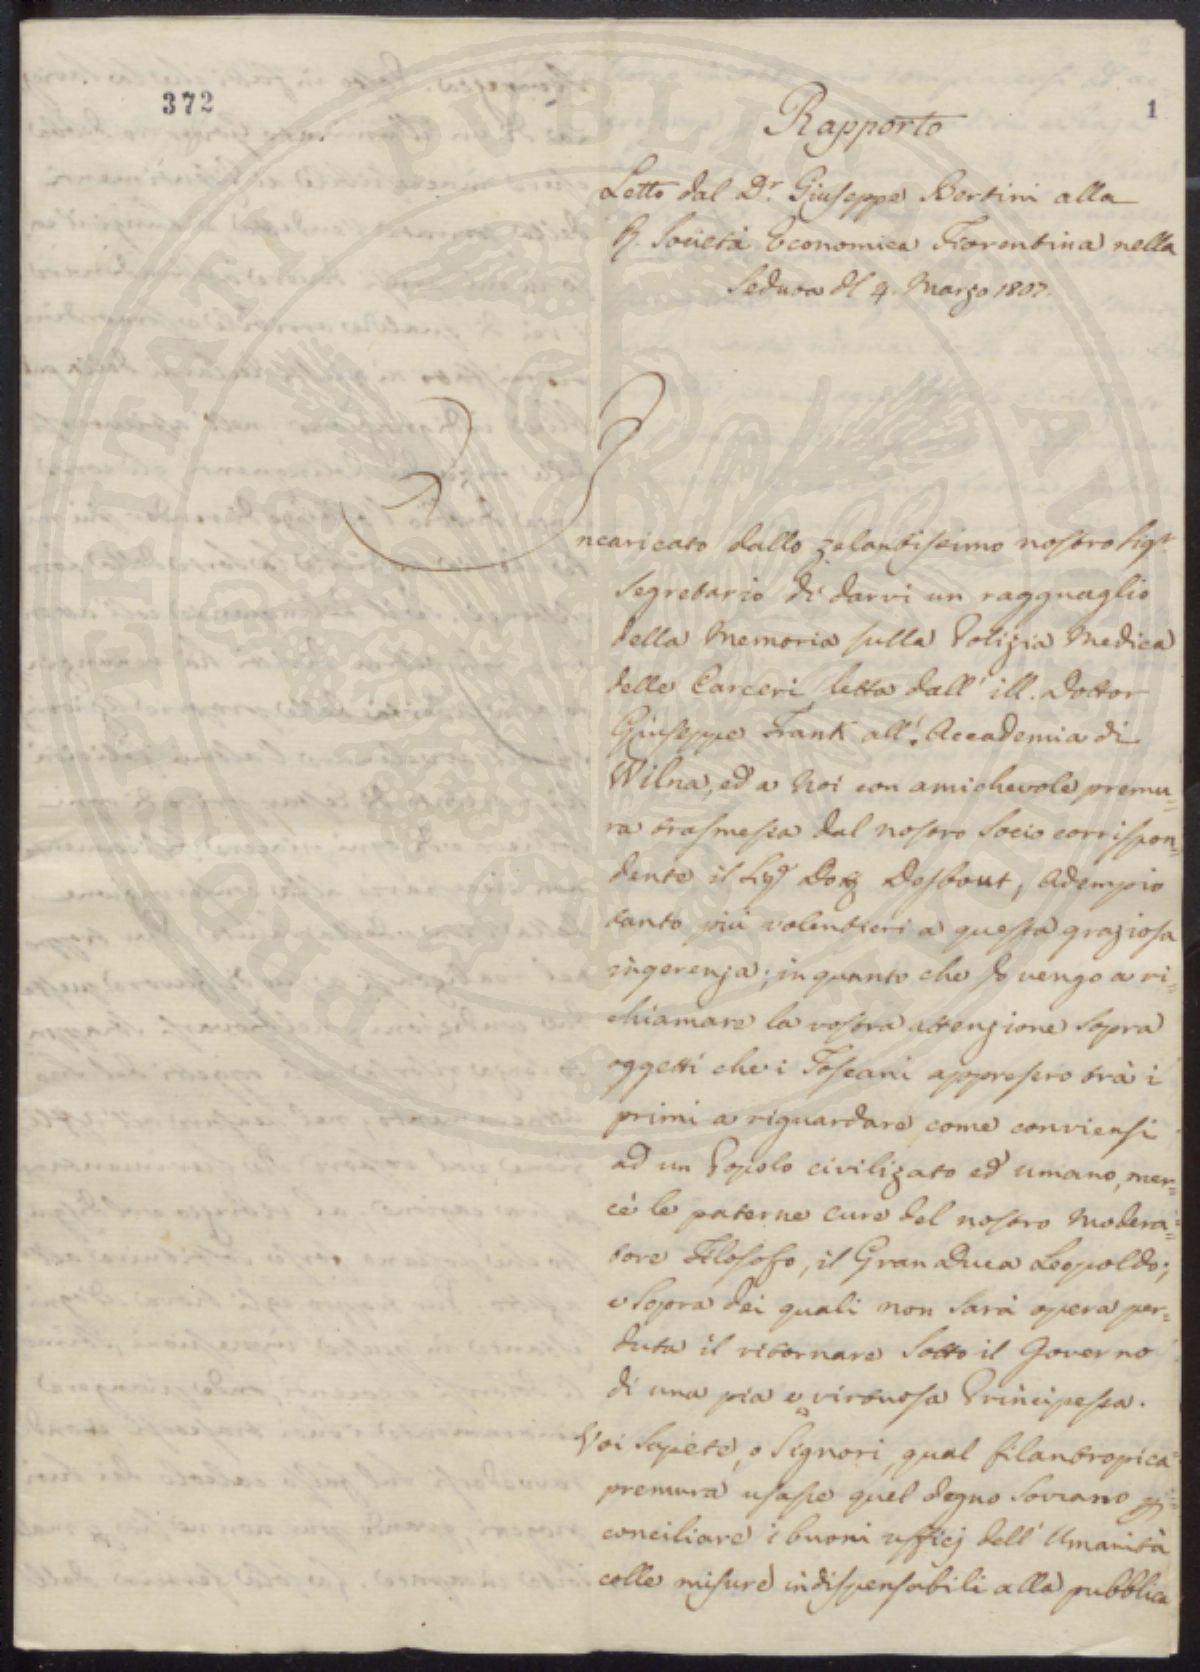 372
1
Rapporto
Letto dal Dr. Giuseppe Bertini alla
R. Società Economica Fiorentina nella
Seduta del 4. Marzo 1807.
Incaricato dallo zelantissimo nostro Sigr
Segretario di darvi un ragguaglio
della Memoria sulla Polizia Medica
delle Carceri, letta dall' ill. Dottor
Giuseppe Frank all' Accademia di
Wilna, ed a Noi con amichevole premu=
ra trasmessa dal nostro Socio corrispon=
dente il Sigr Desbout, adempio
tanto più volentieri a questa graziosa
ingerenza; in quanto che Io vengo a ri=
chiamare la vostra attenzione sopra
oggetti che i Toscani appresero trà i
primi a riguardare, come conviensi
ad un Popolo civilizato ed umano, mer=
cè le paterne cure del nostro Modera=
tore Filosofo, il Gran Duca Leopoldo;
e sopra dei quali non sarà opera per=
duta il ritornare sotto il Governo
di una pia e virtuosa Principessa.
Voi sapete, o Signori, qual filantropica
premura usasse quel degno Sovrano
conciliare i buoni ufficj dell' Umanità
colle misure indispensabili alla pubblica
PROSPERITATI PUBLICAE AUGENDAE